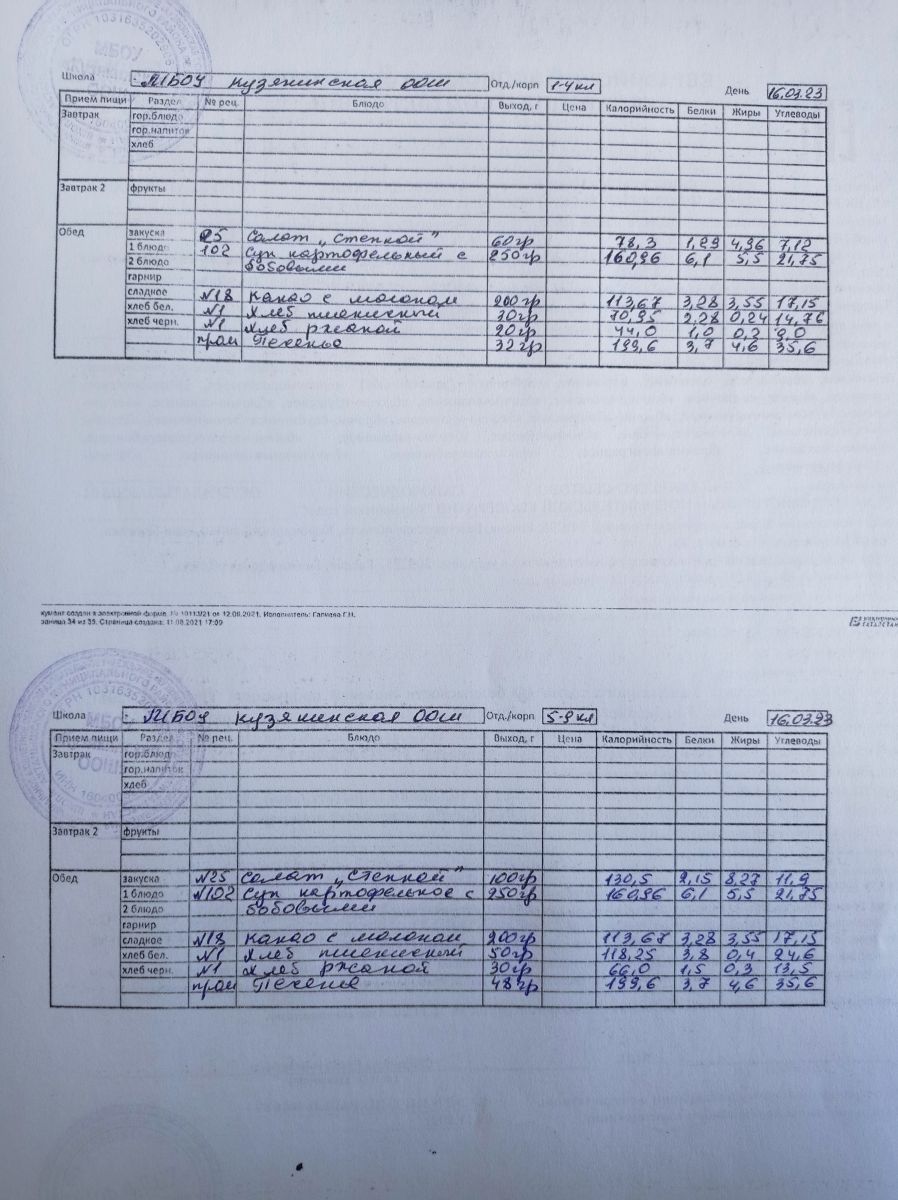 Школа МБОУ Кузякинская ООШ Отд./корп 1-4 кл День 16.03.23
Прием пищи Раздел № рец. Блюдо Выход, г Цена Калорийность Белки Жиры Углеводы
Завтрак гор.блюдо
гор.напиток
хлеб
Завтрак 2 фрукты
Обед закуска 25 Салат „Степной" 60гр 78,3 1,29 4,96 7,12
1 блюдо 102 Суп картофельный с 250гр 160,96 6,1 5,5 21,75
2 блюдо бобовыми
гарнир
сладкое №18 Какао с молоком 200гр 113,67 3,28 3,55 17,15
хлеб бел. №1 Хлеб пшеничный 30гр 70,95 2,28 0,24 14,76
хлеб черн. №1 Хлеб ржаной 20гр 44,0 1,0 0,2 9,0
пром Печенье 32гр 199,6 3,7 4,6 35,6
кумент создан в электронной форме. № 10113/21 от 12.08.2021. Исполнитель: Галиева Г.Н.
раница 34 из 35. Страница создана: 11.08.2021 17:09
ТАТАРСТАН
МБОУ
ООШ
Школа МБОУ Кузякинская ООШ Отд./корп 5-9 кл День 16.03.23
Прием пищи Раздел № рец. Блюдо Выход, г Цена Калорийность Белки Жиры Углеводы
Завтрак гор.блюдо
гор.напиток
хлеб
Завтрак 2 фрукты
Обед закуска №25 Салат „Степной" 100гр 130,5 2,15 8,27 11,9
1 блюдо №102 Суп картофельное с 250гр 160,96 6,1 5,5 21,75
2 блюдо бобовыми
гарнир
сладкое №18 Какао с молоком 200гр 113,67 3,28 3,55 17,15
хлеб бел. №1 Хлеб пшеничный 50гр 118,25 3,8 0,4 24,6
хлеб черн. №1 Хлеб ржаной 30гр 66,0 1,5 0,3 13,5
пром Печенье 48гр 199,6 3,7 4,6 35,6